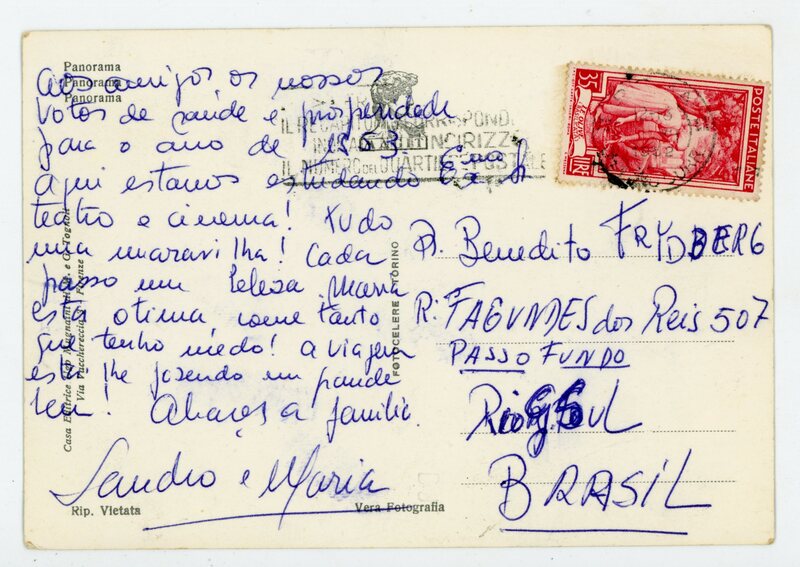 Panorama
Panorama
Panorama
Aos amigos os nossos
votos de saúde e prosperidade
para o ano de 1953.
aqui estamos estudando
teatro e cinema! Tudo
uma maravilha! Cada
passo um beleza. Maria
está otima, come tanto
que tenho medo! a viagem
está lhe fazendo um grande
bem! Abraços a familia.
Sandro e Maria
Rip. Vietata
Vera Fotografia
Casa Editrice
Via Vacchereccia Firenze
FOTOCELERE TORINO
IL NUMERO DEL QUARTIERE POSTALE
35
LIRE
POSTE ITALIANE
Benedito FRYDBERG
R. FAGUNDES dos Reis 507
PASSO FUNDO
Rio G. Sul
BRASIL